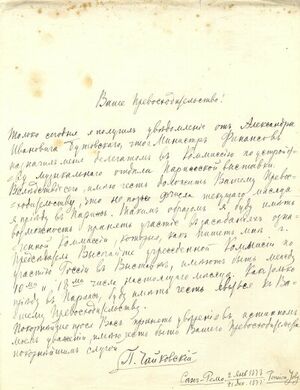 Ваше Превосходительство!
Только сегодня я получил уведомление от Александра
Ивановича Бутовского, что г. Министр Финансов
назначил меня делегатом в Коммиссию по устрой-
ству музыкального отдела Парижской выставки.
Вследствие сего, имею честь доложить Вашему Превос-
ходительству, что не позже числа текущего месяца
я приеду в Париж. Таким образом я буду иметь
возможность принять участие в заседаниях озна-
ченной Коммиссии, которые, как пишет мне г.
Председатель Высочайше учрежденной Коммиссии по
участию России в Выставке, имеют быть между
10ым и 18ым числом настоящего месяца. Как только
приеду в Париж, буду иметь честь явиться к Ва-
шему Превосходительству.
Покорнейше прося Вас принять уверение в истинном
моем уважении имею честь быть Вашего Превосходительства
покорнейшим слугой
П. Чайковский
Сан-Ремо 2 Янв 1878
21 Дек. 1877